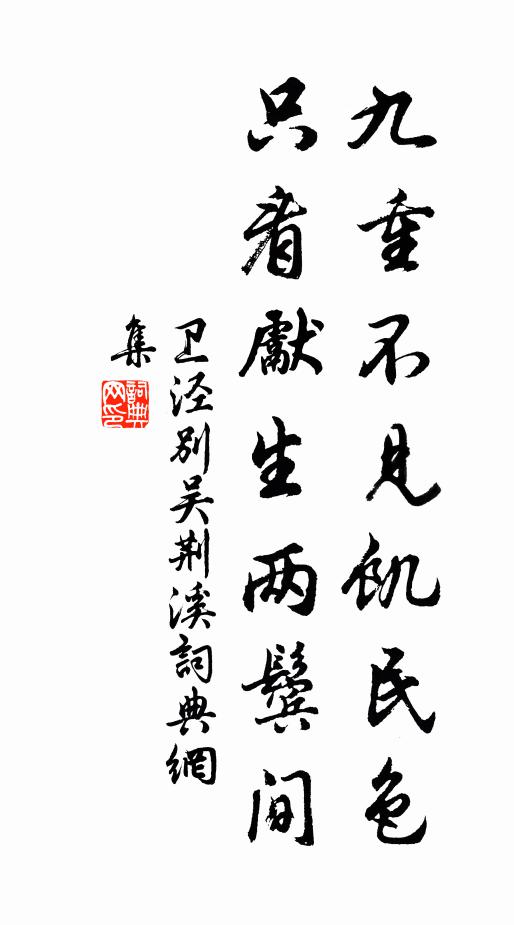 九重不见飢民色
只看獻生两鬓间
卫泾别吴荆溪詞典網
集
詞典
网印